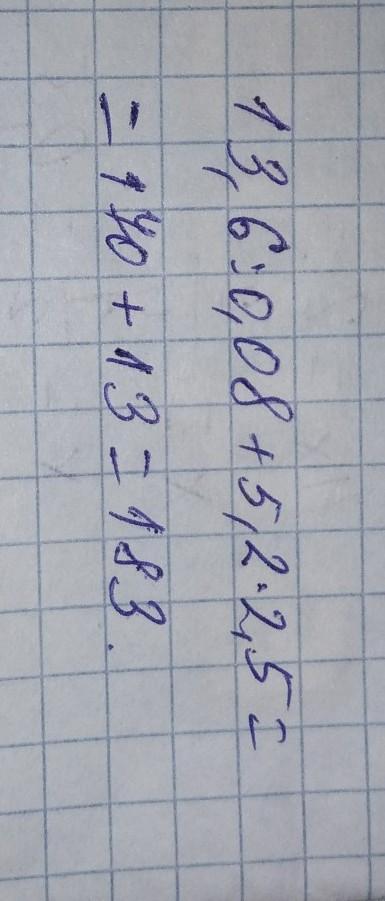 13,6:0,08+5,2·2,5=
=170+13=183.